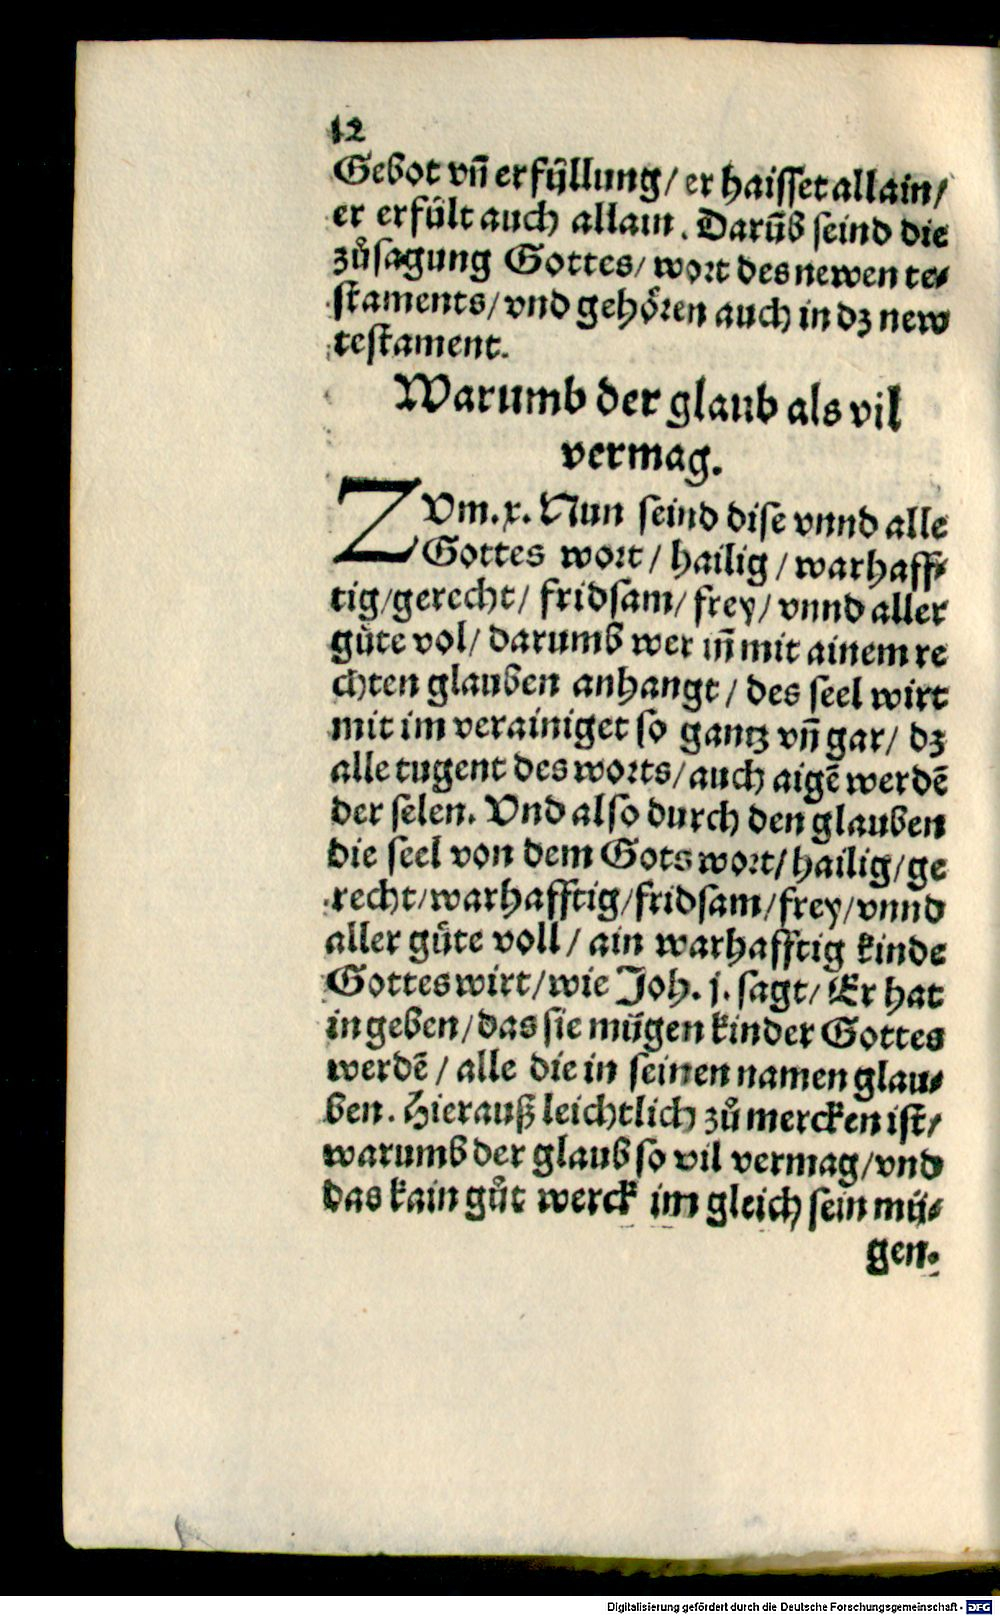 12
Gebot vñ erfüllung/ er haisset allain/
er erfült auch allain. Darüb seind die
zůsagung Gottes/ wort des newen te⸗
staments/ vnd gehören auch in dz new
testament.
Warumb der glaub als vil
vermag.
ZVm.x. Nun seind dise vnnd alle
Gottes wort/ hailig/ warhaff⸗
tig/gerecht/ fridsam/ frey/ vnnd aller
güte vol/ darumb wer in̄ mit ainem re
chten glauben anhangt/ des seel wirt
mit im verainiget so gantz vñ gar/ dz
alle tugent des worts/ auch aigē werdē
der selen. Vnd also durch den glauben
die seel von dem Gots wort/ hailig/ ge
recht/warhafftig/fridsam/frey/vnnd
aller güte voll/ ain warhafftig kinde
Gottes wirt/wie Joh. j. sagt/ Er hat
in geben/das sie mügen kinder Gottes
werdē/ alle die in seinen namen glau⸗
ben. Hierauß leichtlich zů mercken ist/
warumb der glaub so vil vermag/vnd
das kain gůt werck im gleich sein mü⸗
gen.
Digitalisierung gefördert durch die Deutsche Forschungsgemeinschaft - DFG